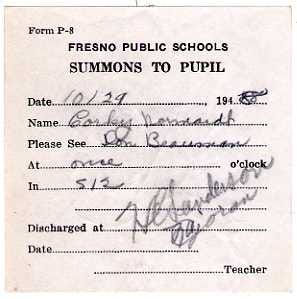 Form P-8
FRESNO PUBLIC SCHOOLS
SUMMONS TO PUPIL
Date 10/29 194
Name Corky
Please See Don Beauman
At once o'clock
In 512
Discharged at
Date
Teacher